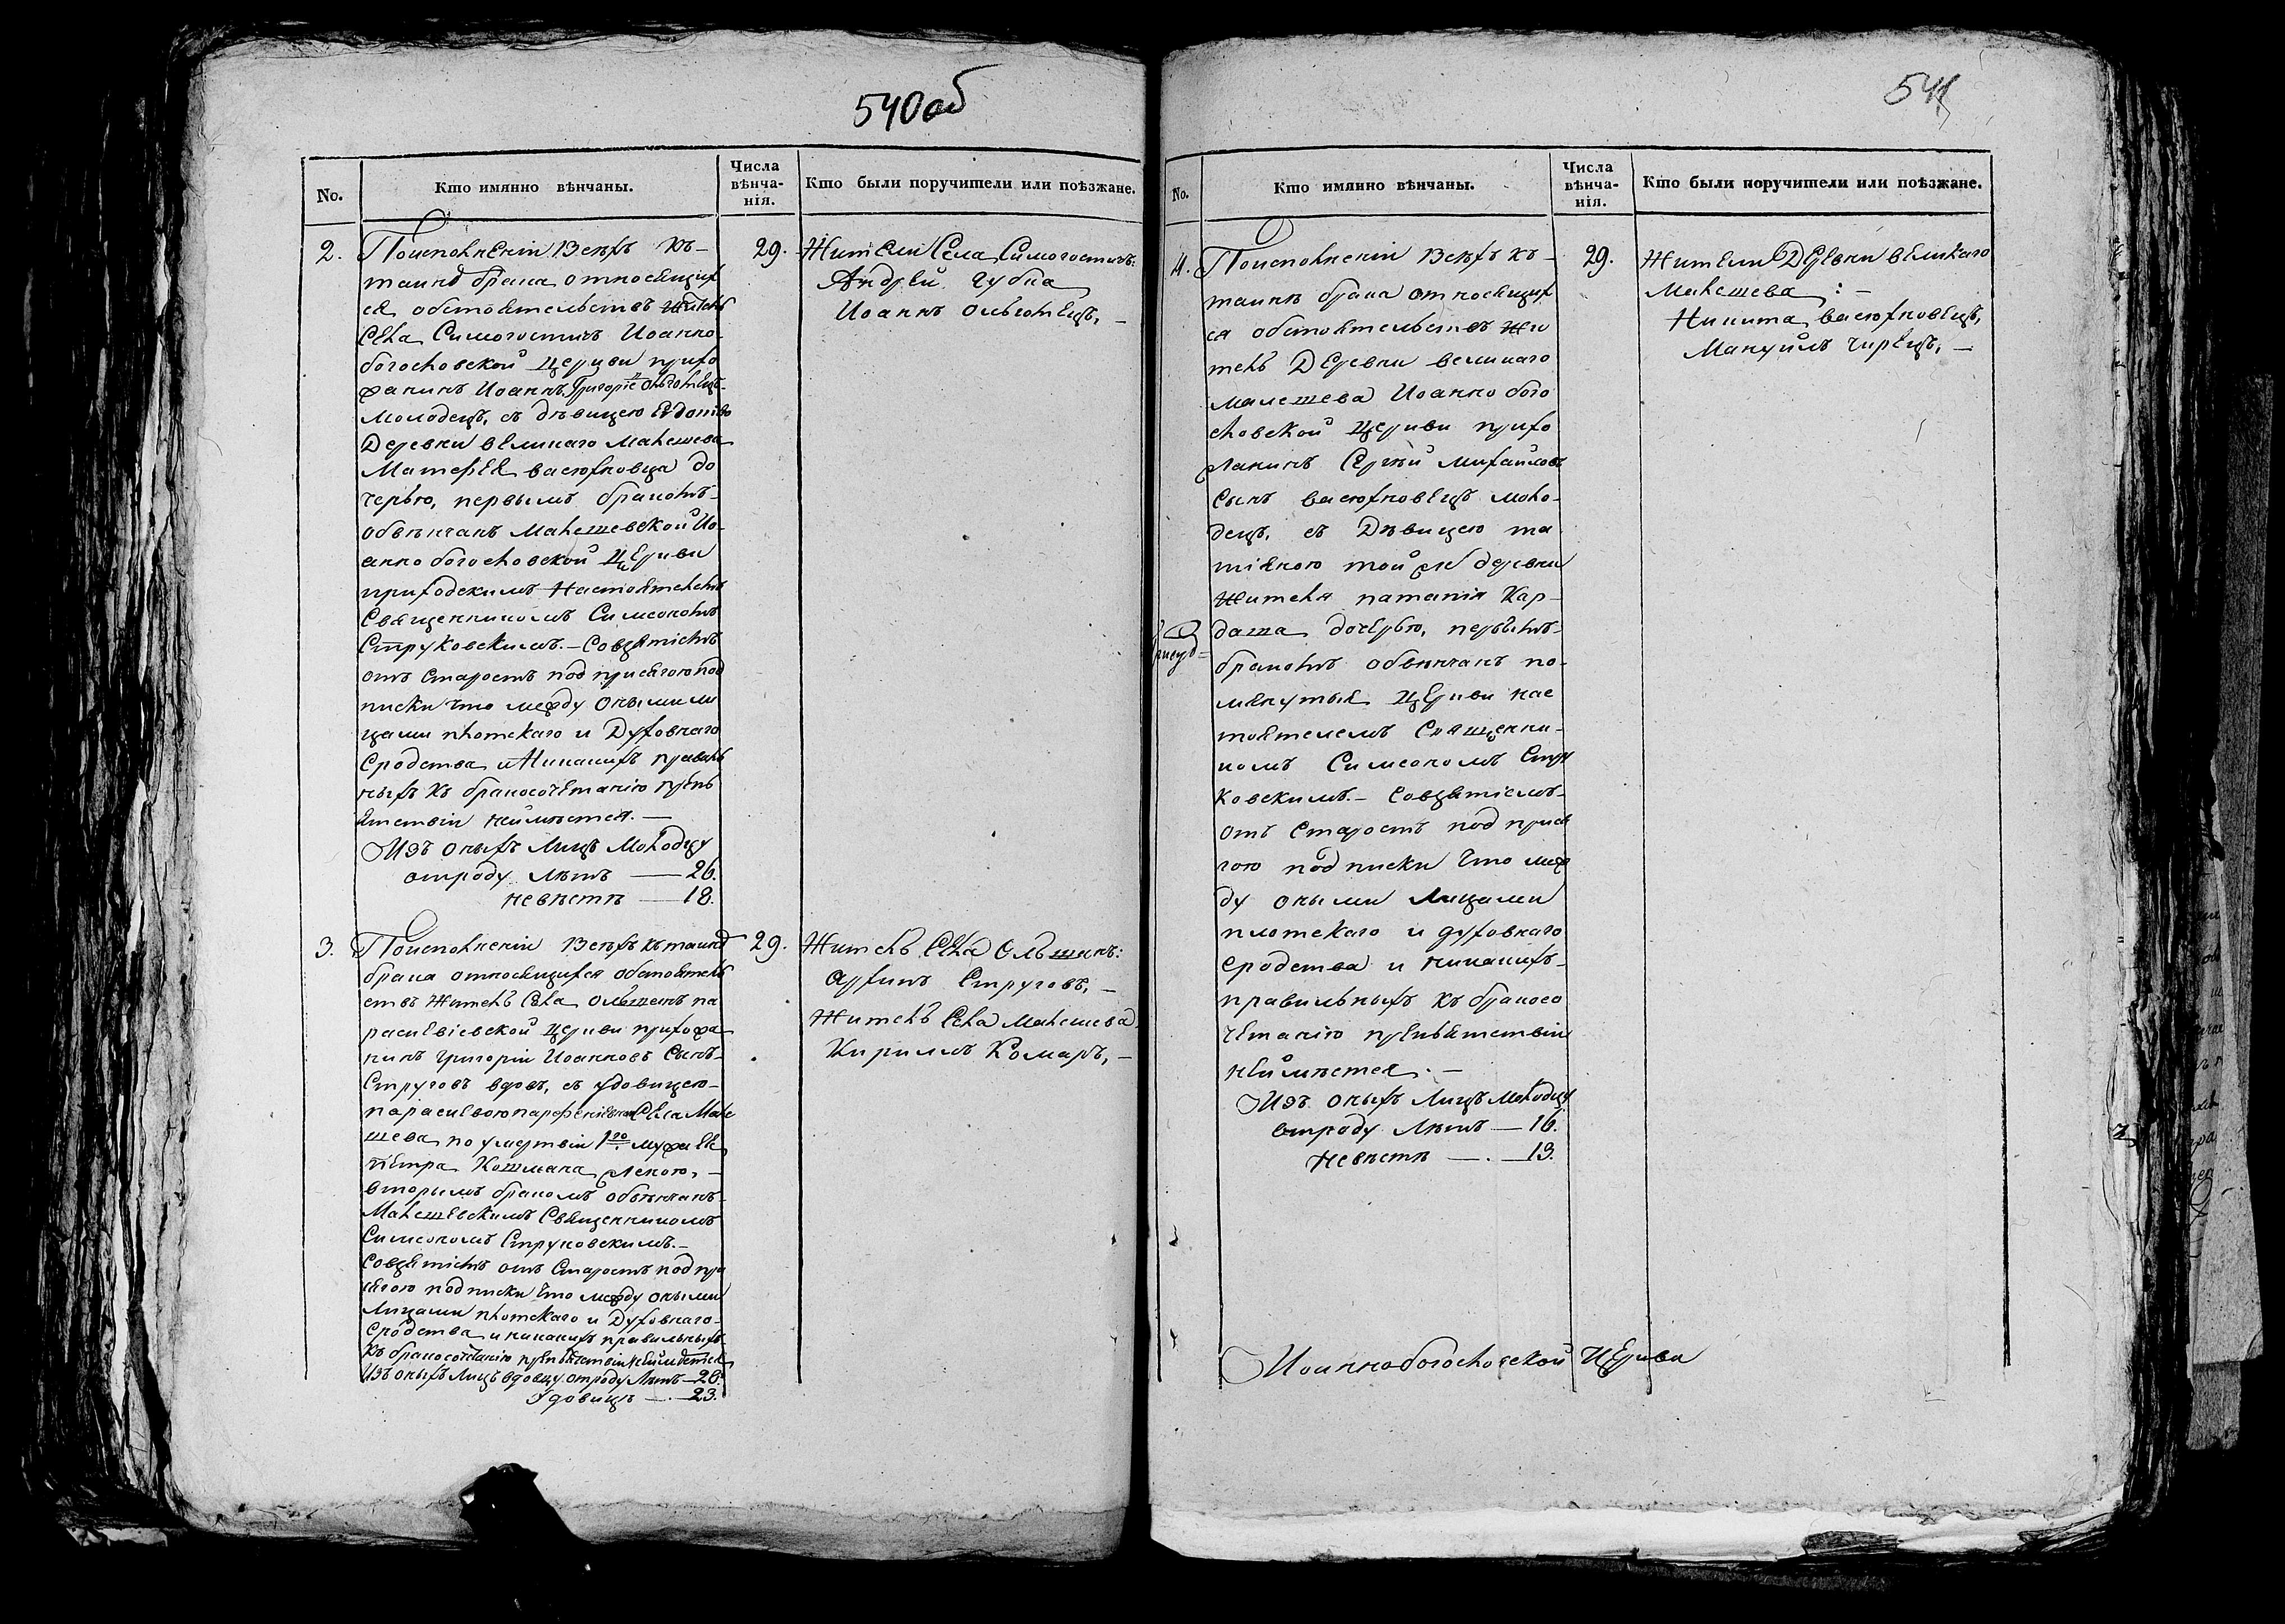 540об
No.
Кто имянно вѣнчаны.
Числа
вѣнча-
нія.
Кто были поручители или поѣзжане.
2.
По исполненіи Всѣхъ къ-
таинѣ брака относящих
ся обстоятельствъ житель
Села Симогостичъ Иоанно
богословской Церкви прихо
жанинъ Иоаннъ Григорiе Ольготецъ
молодецъ, съ дѣвицею Евдокіею
Деревни великаго Малешева
Матфея васюхновца до
черью, первымъ бракомъ
обвѣнчанъ Малешевской Ио-
анно богословской Церкви
приходскимъ Настоятелемъ
Священникомъ Симеономъ
Струковскимъ.- Совзятіемъ
отъ Старостъ под присягою под
писки что между оными ли
цами плотскаго и Духовнаго
Сродства и Никакихъ правиль
ныхъ къ бракосочетанію преп
ятствіи неимѣется. —
Изъ оныхъ Лицъ Молодцу
отроду Лѣтъ — 26.
невѣстѣ — 18.
29.
Жители Села Симогостичъ:
Андрей Губка
Иоаннъ Ольготецъ, —
3.
По исполненіи Всѣхъ къ таинѣ
брака относящихся обстоятель
ствъ житель Села Ольшанъ па
раскевіевской Церкви прихожа
нинъ Григорій Иоанновъ Сынъ
Струговъ вдовъ, съ удовицею
параскевою Села Мале
шева по умертвіи 1го мужа Ея
Петра Кошмана женою,
вторымъ бракомъ обвѣнчанъ
Малешевскимъ Священникомъ
Симеономъ Струковскимъ.-
Совзятіемъ отъ Старостъ под при
сягою подписки что между оными
Лицами плотскаго и Духовнаго
Сродства и никакихъ правильныхъ
къ бракосочетанію препятствіи неимѣется
Изъ оныхъ Лицъ вдовцу отроду Лѣтъ — 26.
Удовицѣ — 23.
29.
Житель Села Ольшанъ:
Струговъ, —
Житель Села Малешева
Кириллъ Комаръ, —
541
No.
Кто имянно вѣнчаны.
Числа
вѣнча-
нія.
Кто были поручители или поѣзжане.
4.
По исполненіи Всѣхъ къ-
таинѣ брака относящих
ся обстоятельствъ жи
тель Деревни великаго
малешева Иоанно бого
словской Церкви прихо
жанинъ Сергѣй Михайловъ
Сынъ васюхновецъ моло-
децъ, съ Дѣвицею та
тіяною той же деревни
Жителя Кар-
даша дочерью, первымъ
бракомъ обвѣнчанъ по-
мянутыя Церкви нас
тоятелемъ Священни-
комъ Симеономъ Стру
ковскимъ.- Совзятіемъ
отъ Старостъ под прися
гою подписки Что меж
ду оными Лицами
плотскаго и духовнаго
Сродства и никакихъ
правильныхъ къ бракосо
четанію препятствіи
неимѣется. —
Изъ оныхъ Лицъ Молодцу
отроду Лѣтъ — 16.
Невѣстѣ — 13.
29.
Жители Деревни великаго
Малешева : —
Никита васюхновецъ,
Мануилъ Чирецъ, —
Иоаннобогословской Церкви